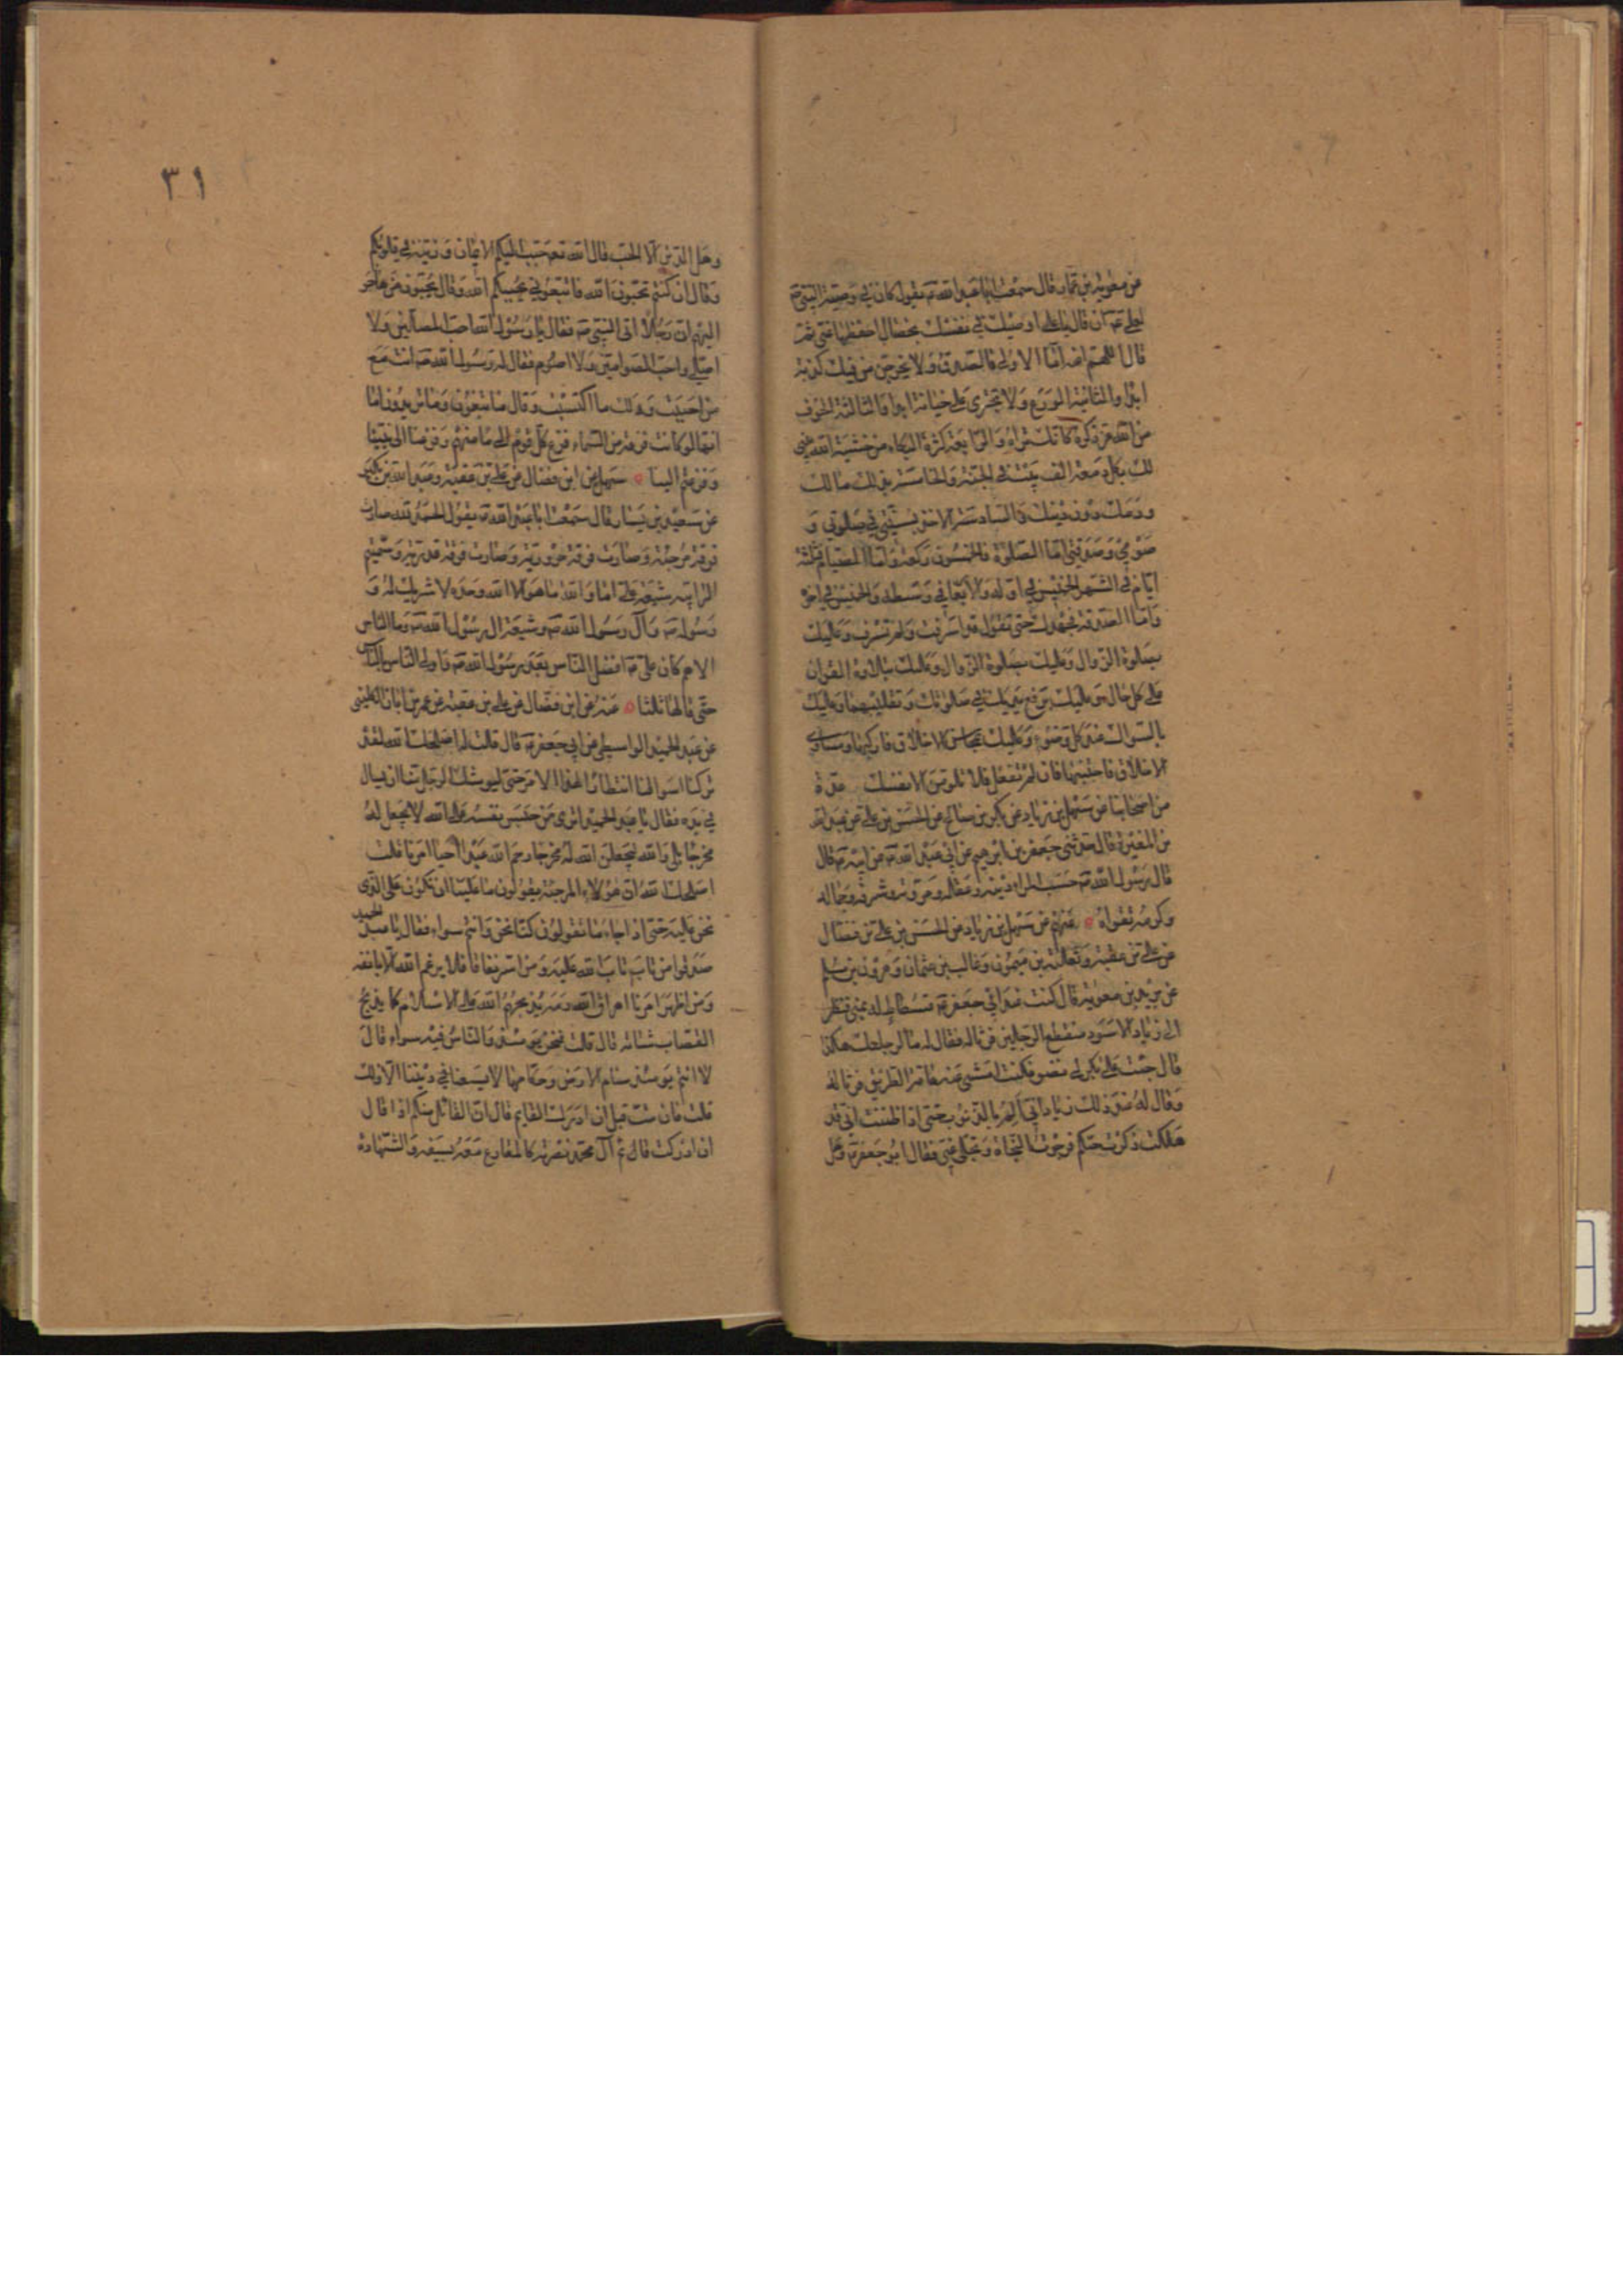 عن معوية بن عمار قال سمعت ابا عبد الله ع يقول كان في وصية النبي ص
لعلي ع ان قال يا علي اوصيك في نفسك بخصال احفظها عني ثم
قال اللهم اعنه اما الاولى فالصدق ولا يخرجن من فيك كذبة
ابدا والثانية الورع ولا تجتري على خيانة ابدا والثالثة الخوف
من الله عز ذكره كانك تراه والرابعة كثرة البكاء من خشية الله يبنى
لك بكل دمعة الف بيت في الجنة والخامسة بذلك مالك
ودمك دون دينك والسادسة الاخذ بسنتي في صلوتي و
صومي وصدقتي اما الصلوة فالخمسون ركعة واما الصيام فثلثة
ايام في الشهر الخميس في اوله والاربعا في وسطه والخميس في اخره
واما الصدقة فجهدك حتى تقول قد اسرفت ولم تسرف وعليك
بصلوة الزوال وعليك بصلوة الزوال وعليك بتلاوة القران
على كل حال وعليك برفع يديك في صلوتك وتقليبهما وعليك
بالسواك عند كل وضوء وعليك بمحاسن الاخلاق فاركبها ومساوي
الاخلاق فاجتنبها فان لم تفعل فلا تلومن الا نفسك عدة
من اصحابنا عن سهل بن زياد عن بكر بن صالح عن الحسن بن علي عن عبد الله
بن المغيرة قال حدثني جعفر بن ابرهيم عن ابي عبد الله ع عن ابيه ع قال
قال رسول الله ص حسب المرء دينه وعقله ومروته وشرفه وجماله
وكرمه تقواه عنهم عن سهل بن زياد عن الحسن بن علي بن فضال
عن علي بن عقبة وثعلبة بن ميمون وغالب بن عثمان وهرون بن مسلم
عن بريد بن معوية قال كنت عند ابي جعفر ع في فسطاط له بمنى فنظر
الى زياد الاسود منقطع الرجلين فرثا له فقال له ما لرجليك هكذا
قال جئت على بكر لي نضو فكنت امشي عنه عامة الطريق فرثا له
وقال له عند ذلك زياد اني الم بالذنوب حتى اذا ظننت اني قد
هلكت ذكرت حبكم فرجوت النجاة وتجلى عني فقال ابو جعفر ع وهل
٣١
وهل الدين الا الحب قال الله تع حبب اليكم الايمان وزينه في قلوبكم
وقال ان كنتم تحبون الله فاتبعوني يحببكم الله وقال يحبون من هاجر
اليهم ان رجلا اتى النبي ص فقال يا رسول الله احب المصلين ولا
اصلي واحب الصوامين ولا اصوم فقال له رسول الله ص انت مع
من احببت ولك ما اكتسبت وقال ما تبغون وما تريدون اما
انها لو كانت فزعة من السماء فزع كل قوم الى مامنهم وفزعنا الى نبينا
وفزعتم الينا سهل عن ابن فضال عن علي بن عقبة وعبد الله بن بكير
عن سعيد بن يسار قال سمعت ابا عبد الله ع يقول الحمد لله صارت
فرقة مرجئة وصارت فرقة حرورية وصارت فرقة قدرية وسميتم
الترابية وشيعة علي اما والله ما هو الا الله وحده لا شريك له و
رسوله ص وآل رسول الله ص وشيعة ال رسول الله ص وما الناس
الا هم كان علي ع افضل الناس بعد رسول الله ص واولى الناس بالناس
حتى قالها ثلثا عنه عن ابن فضال عن علي بن عقبة عن عمر بن ابان الكلبي
عن عبد الحميد الواسطي عن ابي جعفر ع قال قلت له اصلحك الله لقد
تركنا اسواقنا انتظارا لهذا الامر حتى ليوشك الرجل منا ان يسال
في يده فقال يا عبد الحميد اترى من حبس نفسه على الله لا يجعل له
مخرجا بلى والله ليجعلن الله له مخرجا رحم الله عبدا احيا امرنا قلت
اصلحك الله ان هؤلاء المرجئة يقولون ما علينا ان نكون على الذي
نحن عليه حتى اذا جاء ما تقولون كنا نحن وانتم سواء فقال يا عبد الحميد
صدقوا من تاب تاب الله عليه ومن اسر نفاقا فلا يرغم الله الا بانفه
ومن اظهر امرنا اهراق الله دمه يذبحهم الله على الاسلام كما يذبح
القصاب شاته قال قلت فنحن يومئذ والناس فيه سواء قال
لا انتم يومئذ سنام الارض وحكامها لا يسعنا في ديننا الا ذلك
قلت فان مت قبل ان ادرك القايم قال ان القائل منكم اذا قال
ان ادركت قائم آل محمد نصرته كالمقارع معه بسيفه والشهادة